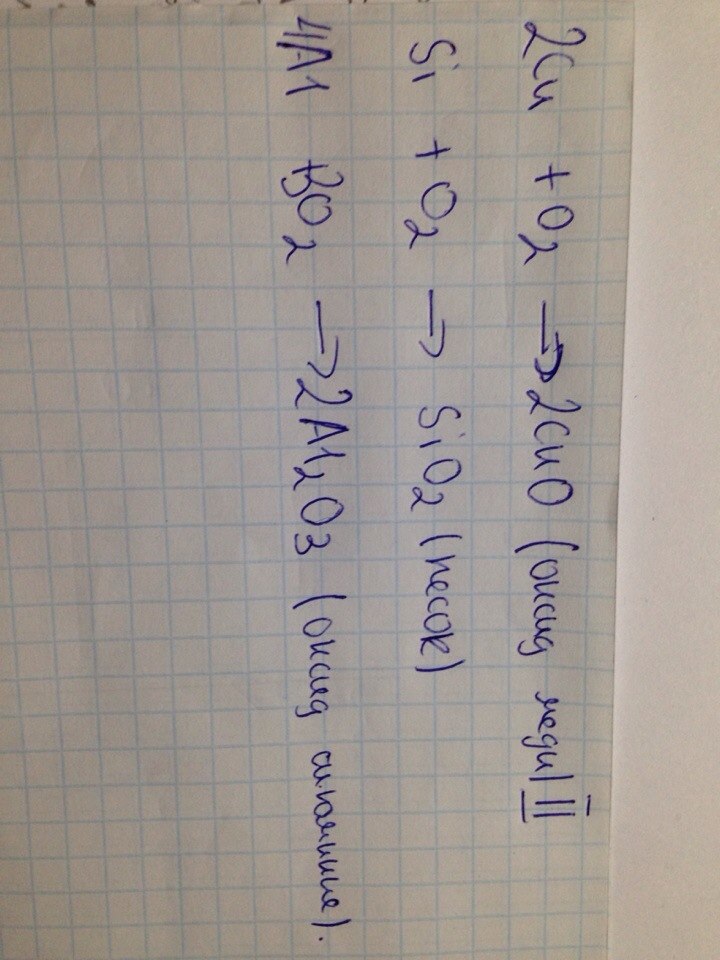 2Cu + O2 → 2CuO (оксид меди II
Si + O2 → SiO2 (песок)
4Al +3O2 → 2Al2O3 (оксид алюминия).